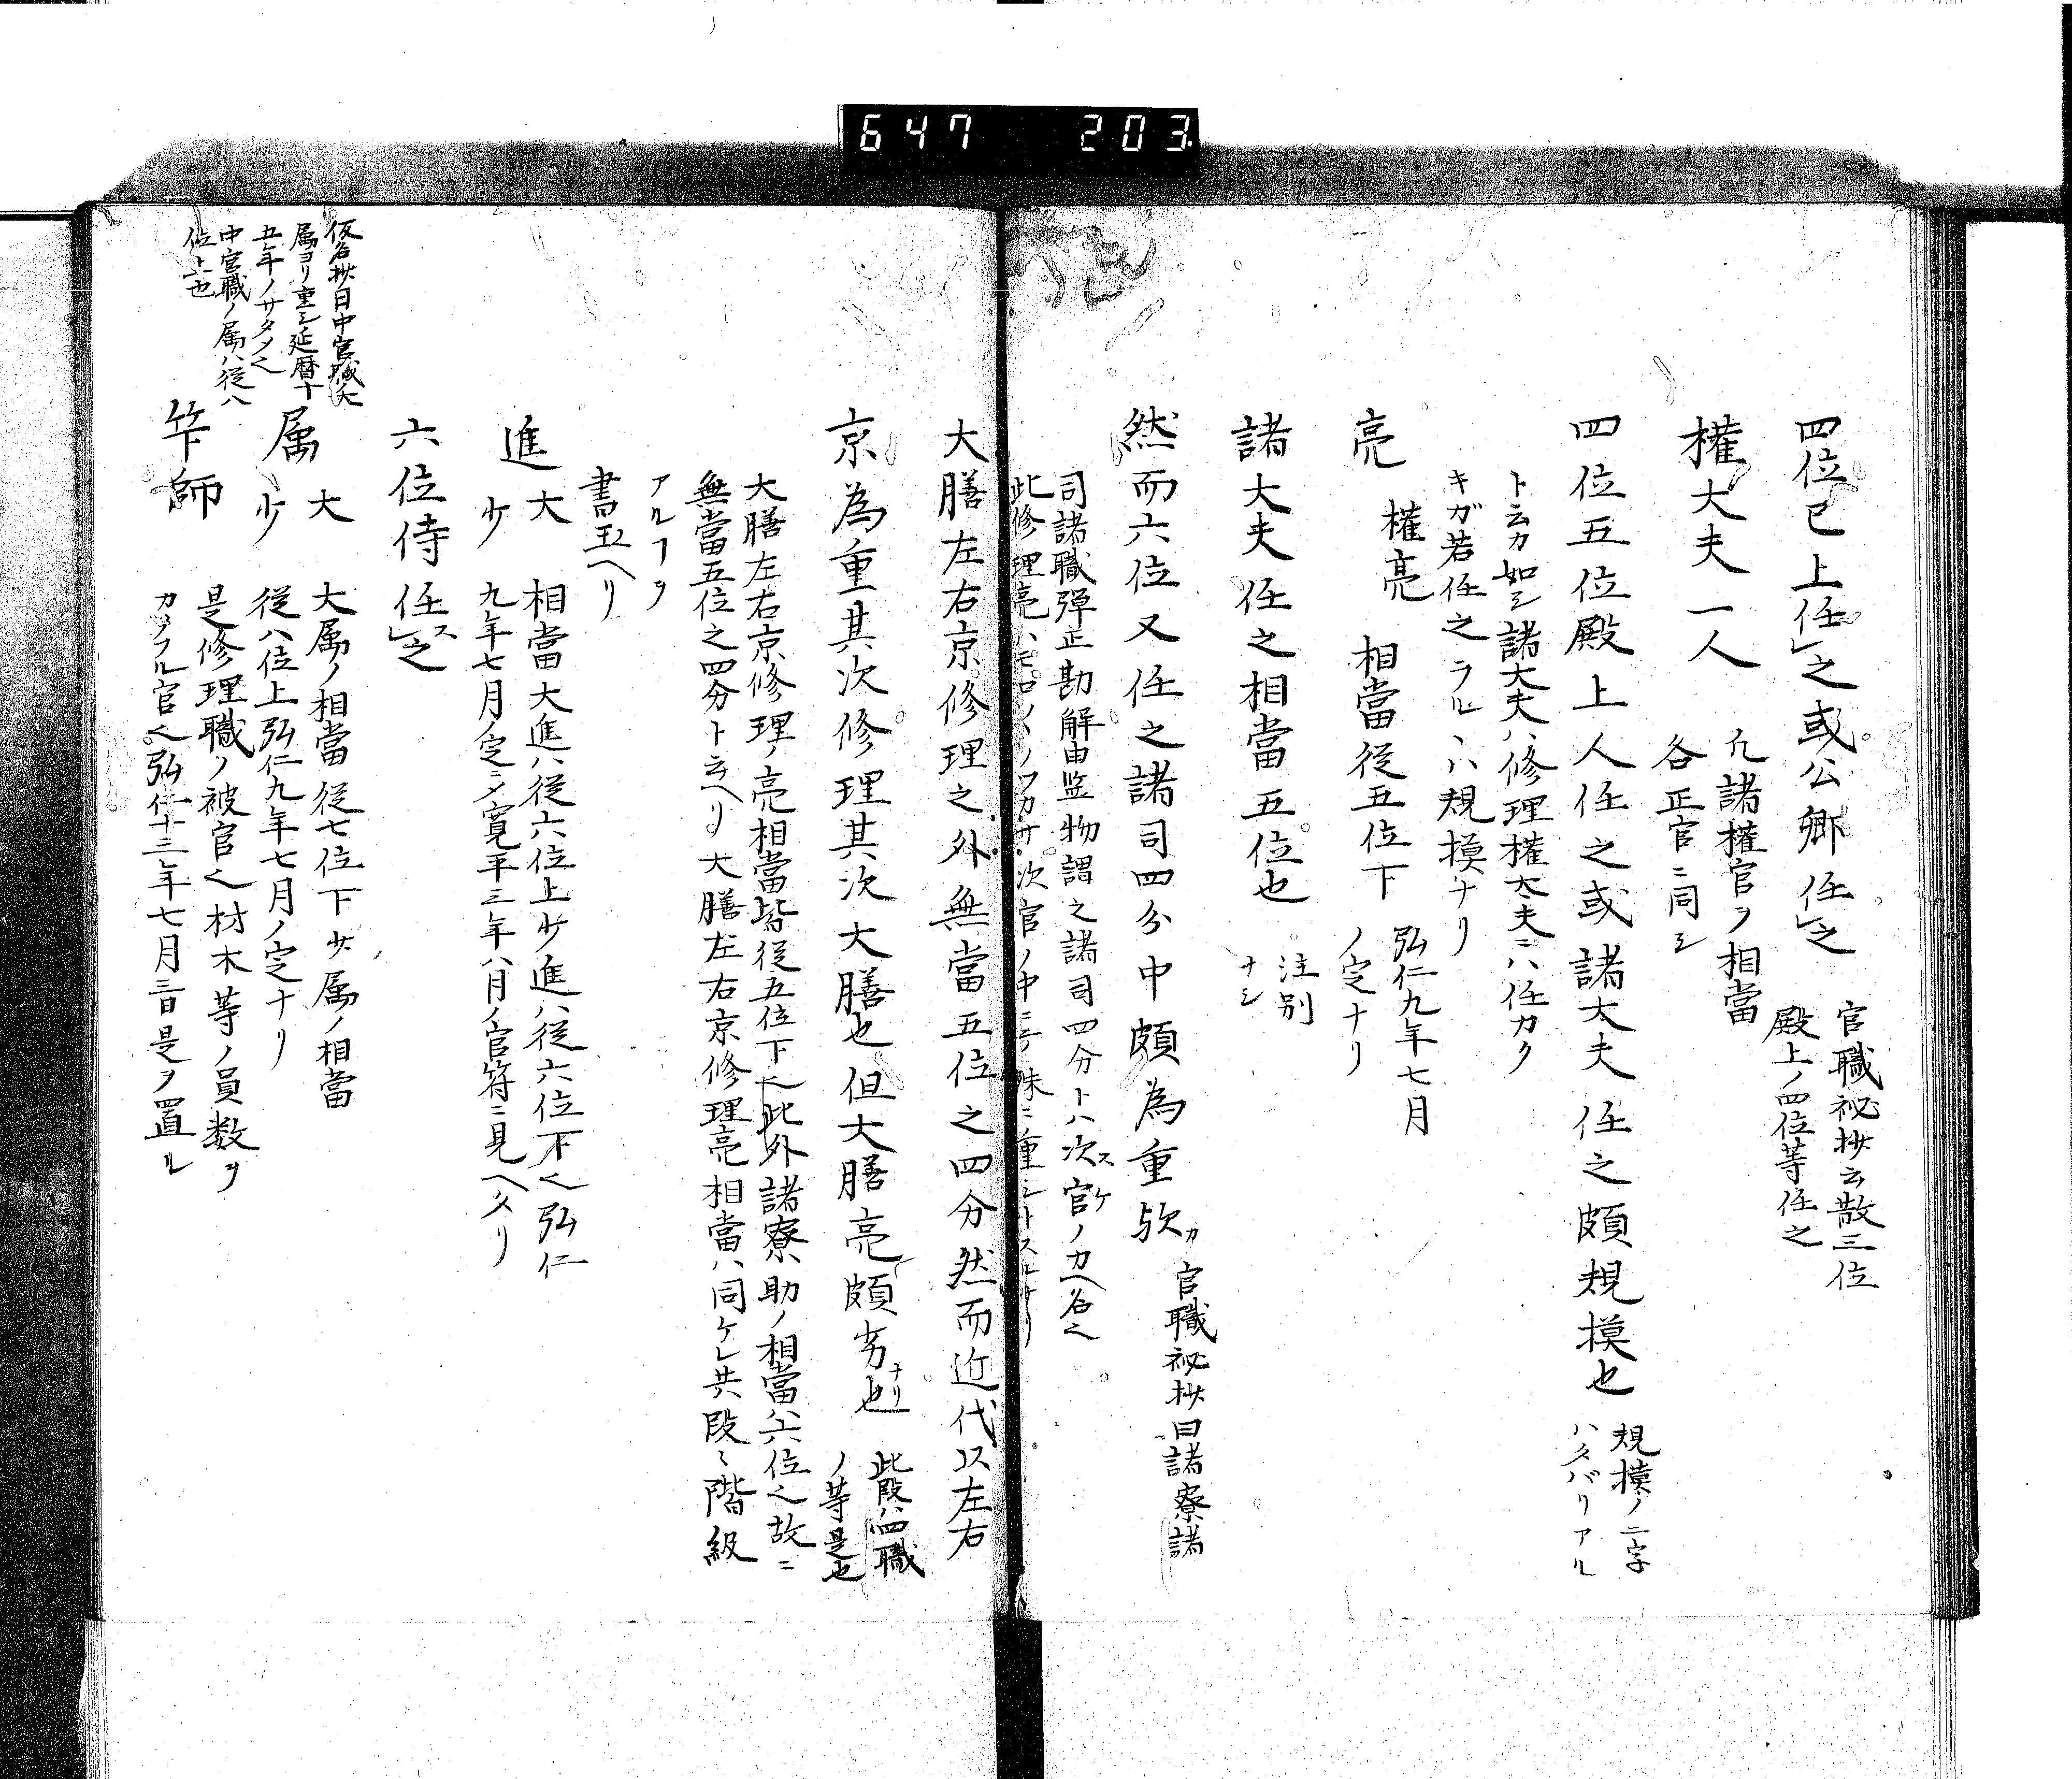 647 203
四位已上任之或公卿任之
官職祕抄云散三位
殿上ノ四位等任之
權大夫一人
凢諸權官ヲ相當
各正官ニ同シ
四位五位殿上人任之或諸大夫任之頗規摸也
規摸ノ二字
ハタバリアル
ト云カ如シ諸大夫ハ修理權大夫ニハ任カタ
キガ若任之ラルヽハ規摸ナリ
亮 權亮 相當從五位下
弘仁九年七月
ノ定ナリ
諸大夫任之相當五位也
注別
ナシ
然而六位又任之諸司四分中頗為重欤カ
官職祕抄曰諸寮諸
司諸職彈正勘解由監物謂之諸司四分トハ次官スケノカヘ名也
此修理亮ハモロ〱ノツカサ次官ノ中ニテ殊ニ重シトスルナリ
大膳左右京修理之外無當五位之四分然而近代以左右
京為重其次修理其次大膳也但大膳亮頗劣ナリ也
此段ハ四職
ノ等是也
大膳左右京修理ノ亮相當皆從五位下也此外諸寮助ノ相當ハ六位也故ニ
無當五位之四分ト云ヘリ大膳左右京修理亮相當ハ同ケレ共段〻階級
アルヿヲ
書玉ヘリ
進 大 少
相當大進ハ從六位上少進ハ從六位下也弘仁
九年七月ノ定ニメ寛平三年八月ノ官符ニ見ヘタリ
六位侍任ス之
仮名抄曰中宮職大
属ヨリ重シ延暦十
五年ノサタ也
中宮職ノ属ハ從八
位上也
属 大 少
大属ノ相當從七位下少属ノ相當
從八位上弘仁九年七月ノ定ナリ
笇師
是修理職ノ被官也材木等ノ員数ヲ
カソフル官也弘仁十三年七月三日是ヲ置ル